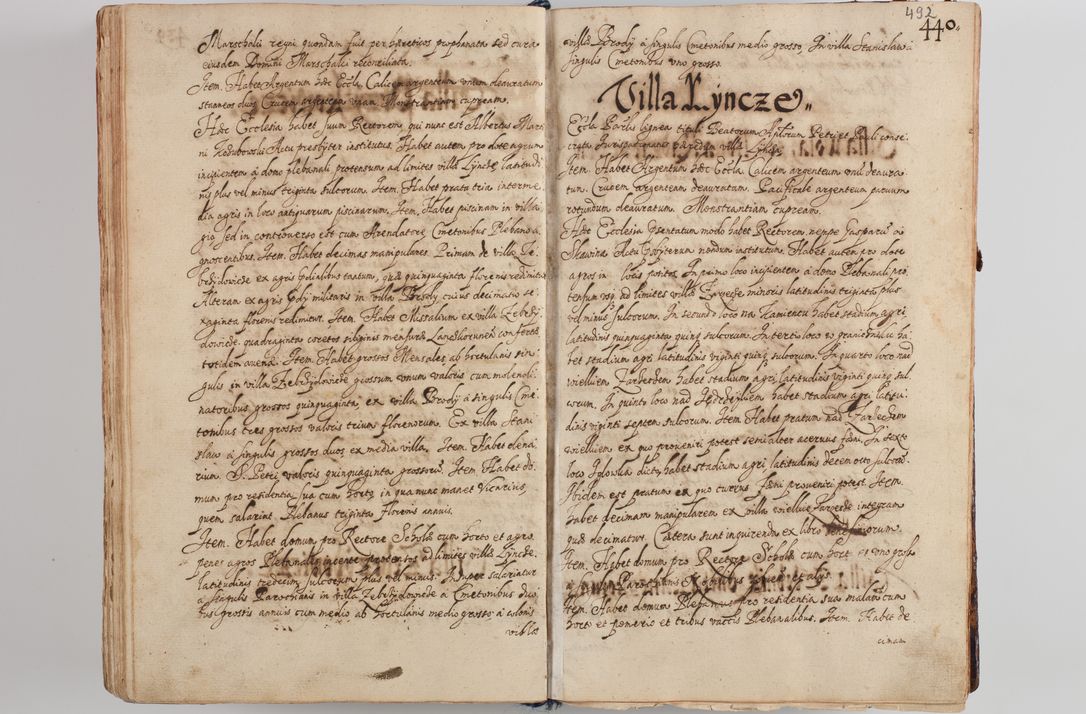 Marschalci regni quondam fuit per hæreticos prophanata sed cura
eiusdem Domini Marschalci reconciliata.
Item. Habet Argentum hæc Eccla. Calicem argenteum unum deauratum
stanneos duos Crucem argenteam unam Monstrantiam cupream.
Hæc Ecclesia habet suum Rectorem qui nunc est Albertus Marti
ni Kedubowski Actu presbyter institutus. Habet autem pro dote agrum
incipientem à domo plebanali protensum ad limites villæ Lyncze, latitudi
nis plus vel minus triginta sulcorum. Item. Habet prata tria interme
dia agris in loco antiquarum piscinarum. Item. Habet piscinam in villa
gio sed in controverso est cum Arendatore Cmetonibus Plebano a
gnoscentibus. Item. Habet decimas manipulares. Primam de villa Ze
brzydowice ex agris prædialibus tantum, quæ quinquaginta florenis redimitur
Alteram ex agris prædy militaris in villa Brody cuius decimatio se
xaginta florenis redimitur. Item. Habet Missalium ex villa Zebrzy
dowice quadraginta coretos siliginis mensuræ Landskorunen conferte
totidem auenæ. Item. Habet grossos Mensales ab hortulanis sin
gulis in villa Zebrzydowice grossum unum valoris cum molendi
natoribus grossos quinquaginta, ex villa Brody à singulis Cme
tonibus tres grossos valoris trium florenorum. Ex villa Stani
slaw à singulis grossos duos ex media villa. Item. Habet dena
rium S. Petri valoris quinquaginta grossorum. Item Habet do
mum pro residentia sua cum horto in qua nunc manet Vicarius,
quem salariat Plebanus triginta florenis annuis.
Item. Habet domum pro Rectore Scholæ cum horto et agro
penes agros Plebanalis iacente protentos ad limites villæ Lyncze.
latitudinis tredecim sulcorum plus vel minus. Insuper salariatur
à singulis Parochianis in villa Zebrzydowice à Cmetonibus duo
bus grossis annuis cum medio ab hortulanis medio grosso à colonis
villæ
492
440.
villæ Brody à singulis Cmetonibus medio grosso. In villa Stanislaw à
singulis Cmetonibus uno grosso.
Villa Lyncze
Eccla Parlis lignea tituli Beatorum Aplorum Petri et Pauli conse
crata Jurispatronatus hæredum villæ Lyncze
Item. Habet Argentum hæc Eccla. Calicem argenteum unum deaura
tum. Crucem argenteam deauratam. Pacificale argenteum paruum
rotundum deauratum. Monstrantiam cupream.
Hæc Ecclesia præsentatum modo habet Rectorem, nempe Gasparum de
Skawina Actu presbyterum nondum institutum. Habet autem pro dote
agros in locis positos. In primo loco incipientem à domo Plebanali pro
tensum usq ad limites villæ Zarzecze minoris latitudinis triginta plus
vel minus sulcorum. In secundo loco na Kamiencu habet stadium agri
latitudinis quinquaginta quinq sulcorum. In tertio loco w granicznku ha
bet stadium agri latitudinis viginti quinq sulcorum. In quarto loco nad
wielkiem Zarzeczem habet stadium agri latitudinis viginti quinq sul
corum. In quinto loco nad habet stadium agri latitu
dinis viginti septem sulcorum. Item Habet pratum nad Zarzeczem
wielkiem ex quo proueniri potest semialter aceruus fæni. In sexto
loco dicto habet stadium agri latitudinis decem octo sulcorum.
Ibidem est pratum ex quo currus fæni proueniri potest. Item.
habet decimam manipularem ex villa wielkie Zarzecze integram
quæ decimatur. Cætera sunt inquirenda ex libro beneficiorum.
Item. Habet domum pro Rectore Scholæ cum horto et uno grosso
Parochianis
Item. Habet domum Plebanus pro residentia sua malam cum
horto et pomerio et tribus vaccis Plebanalibus. Item. Habet de
cimam